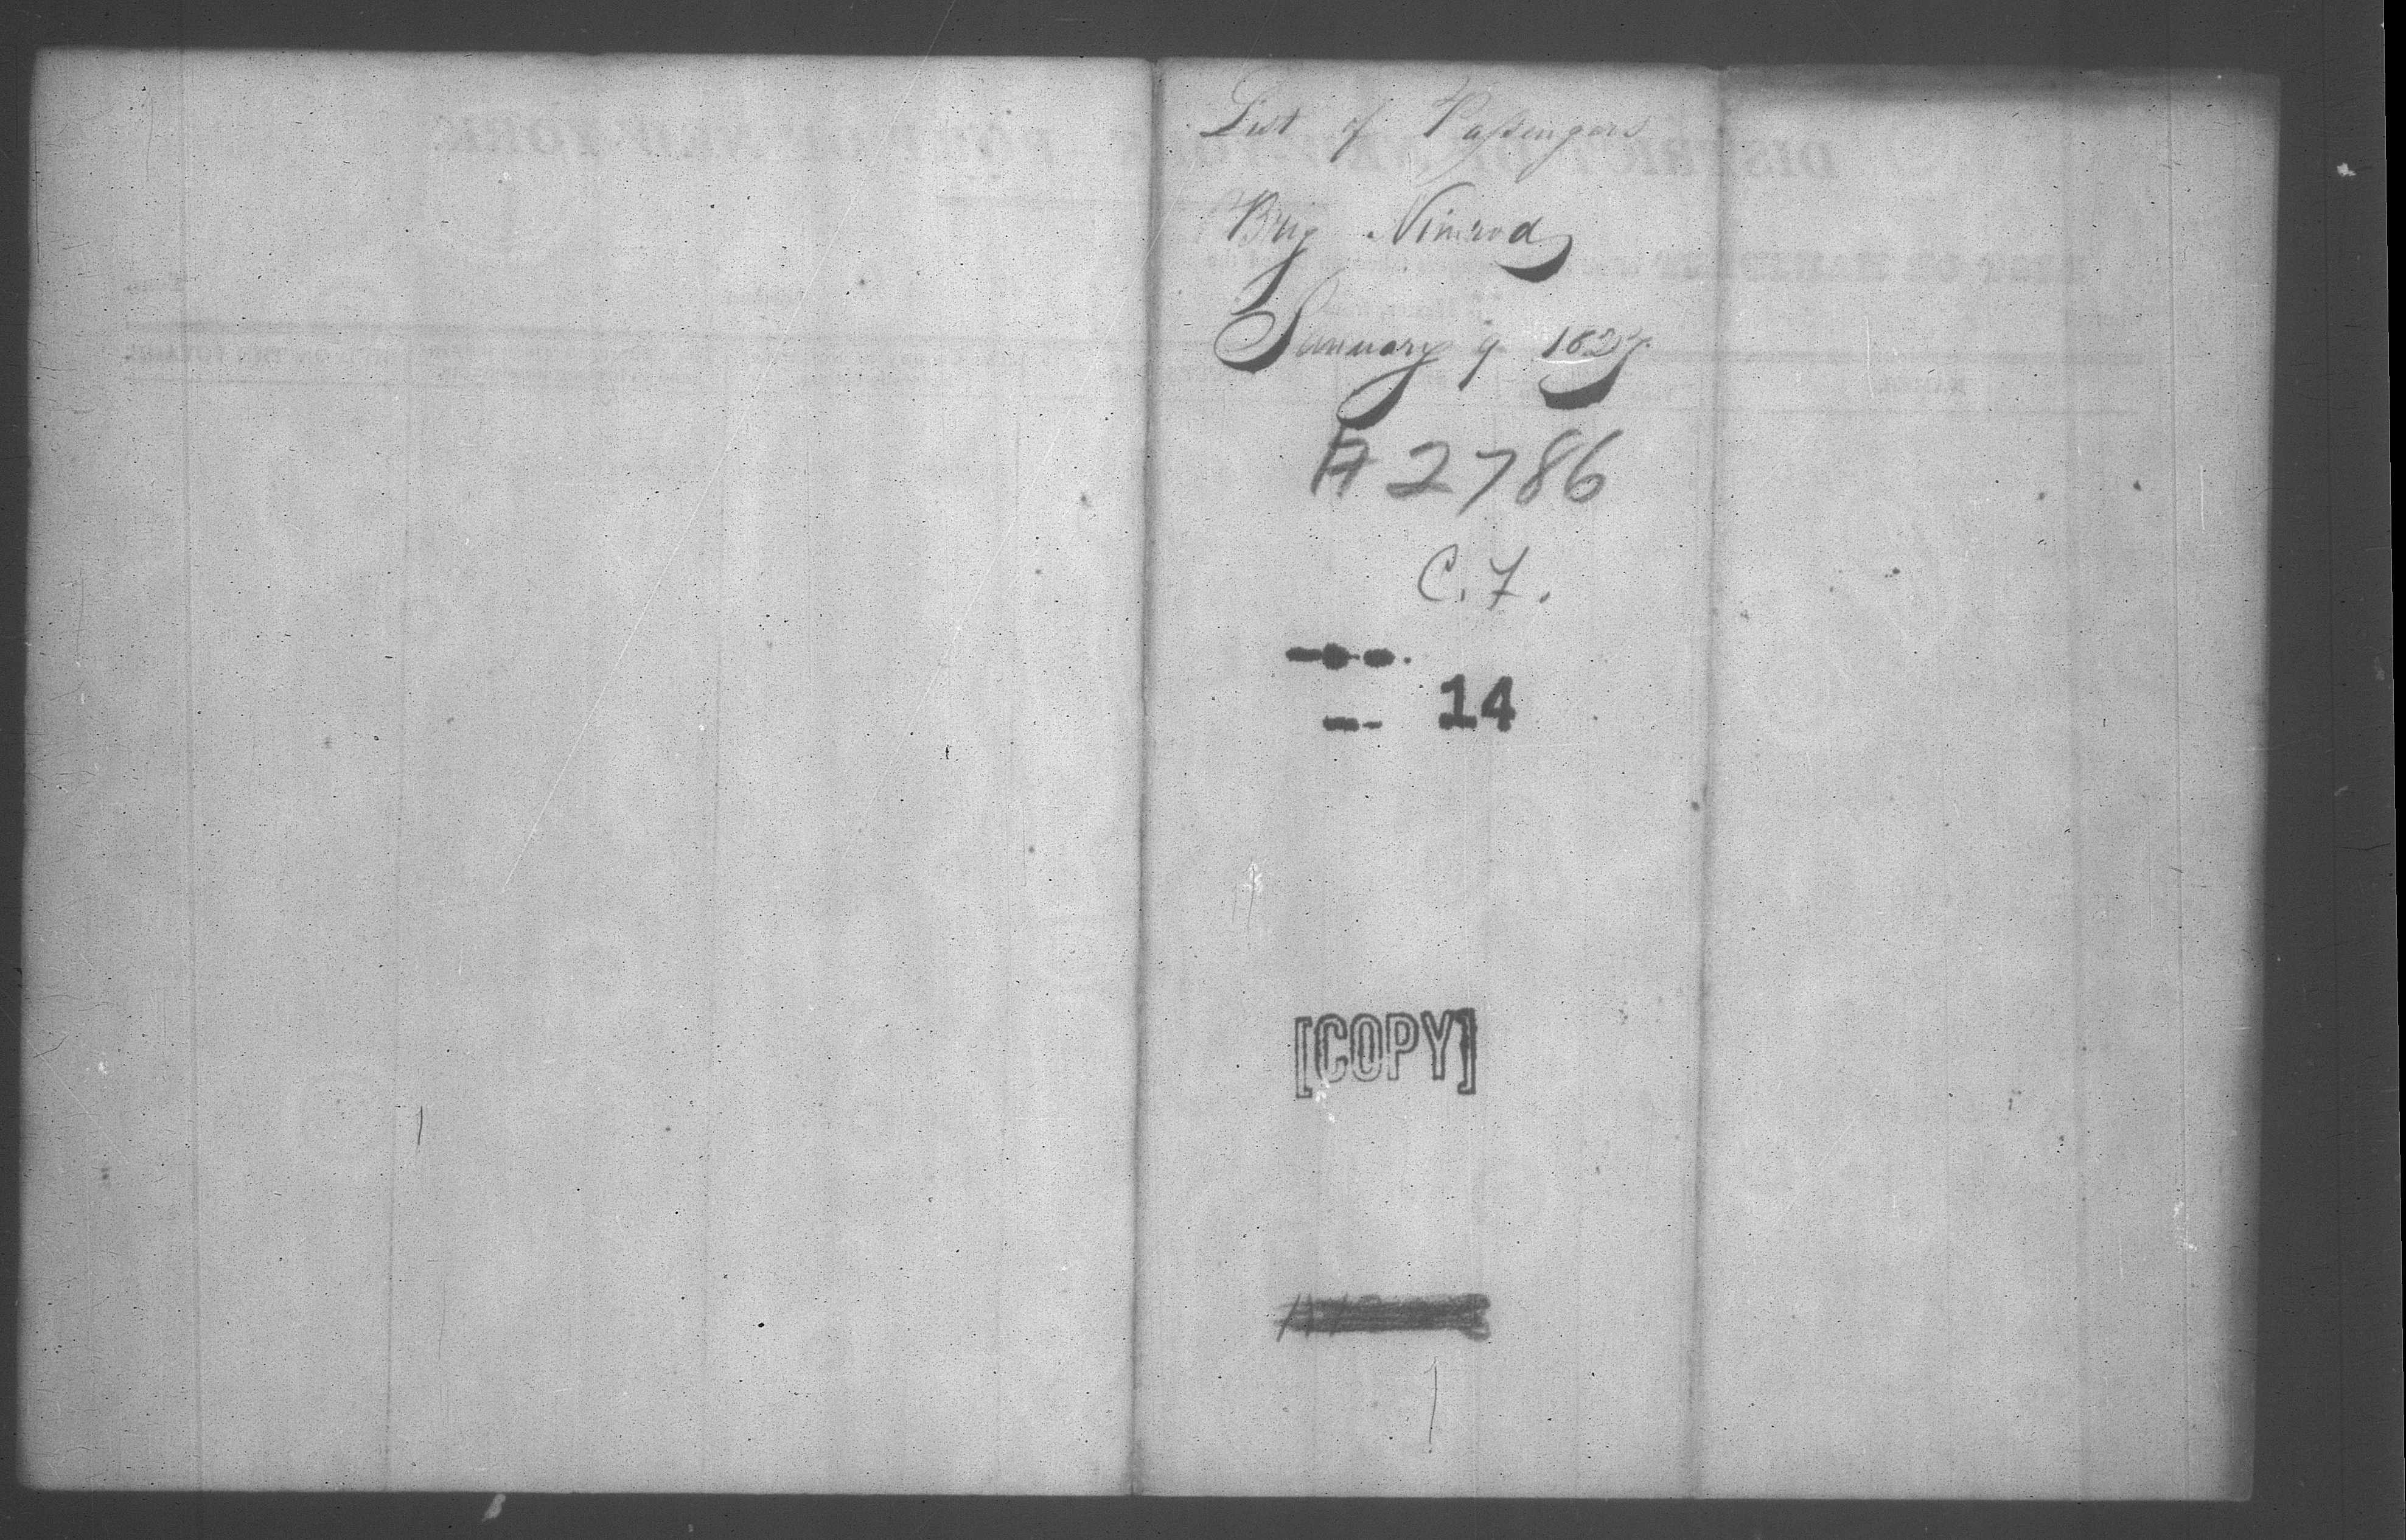 List of Passengers
Brig Nimrod
January 9 1827
# 2786
C. F.
14
[COPY]